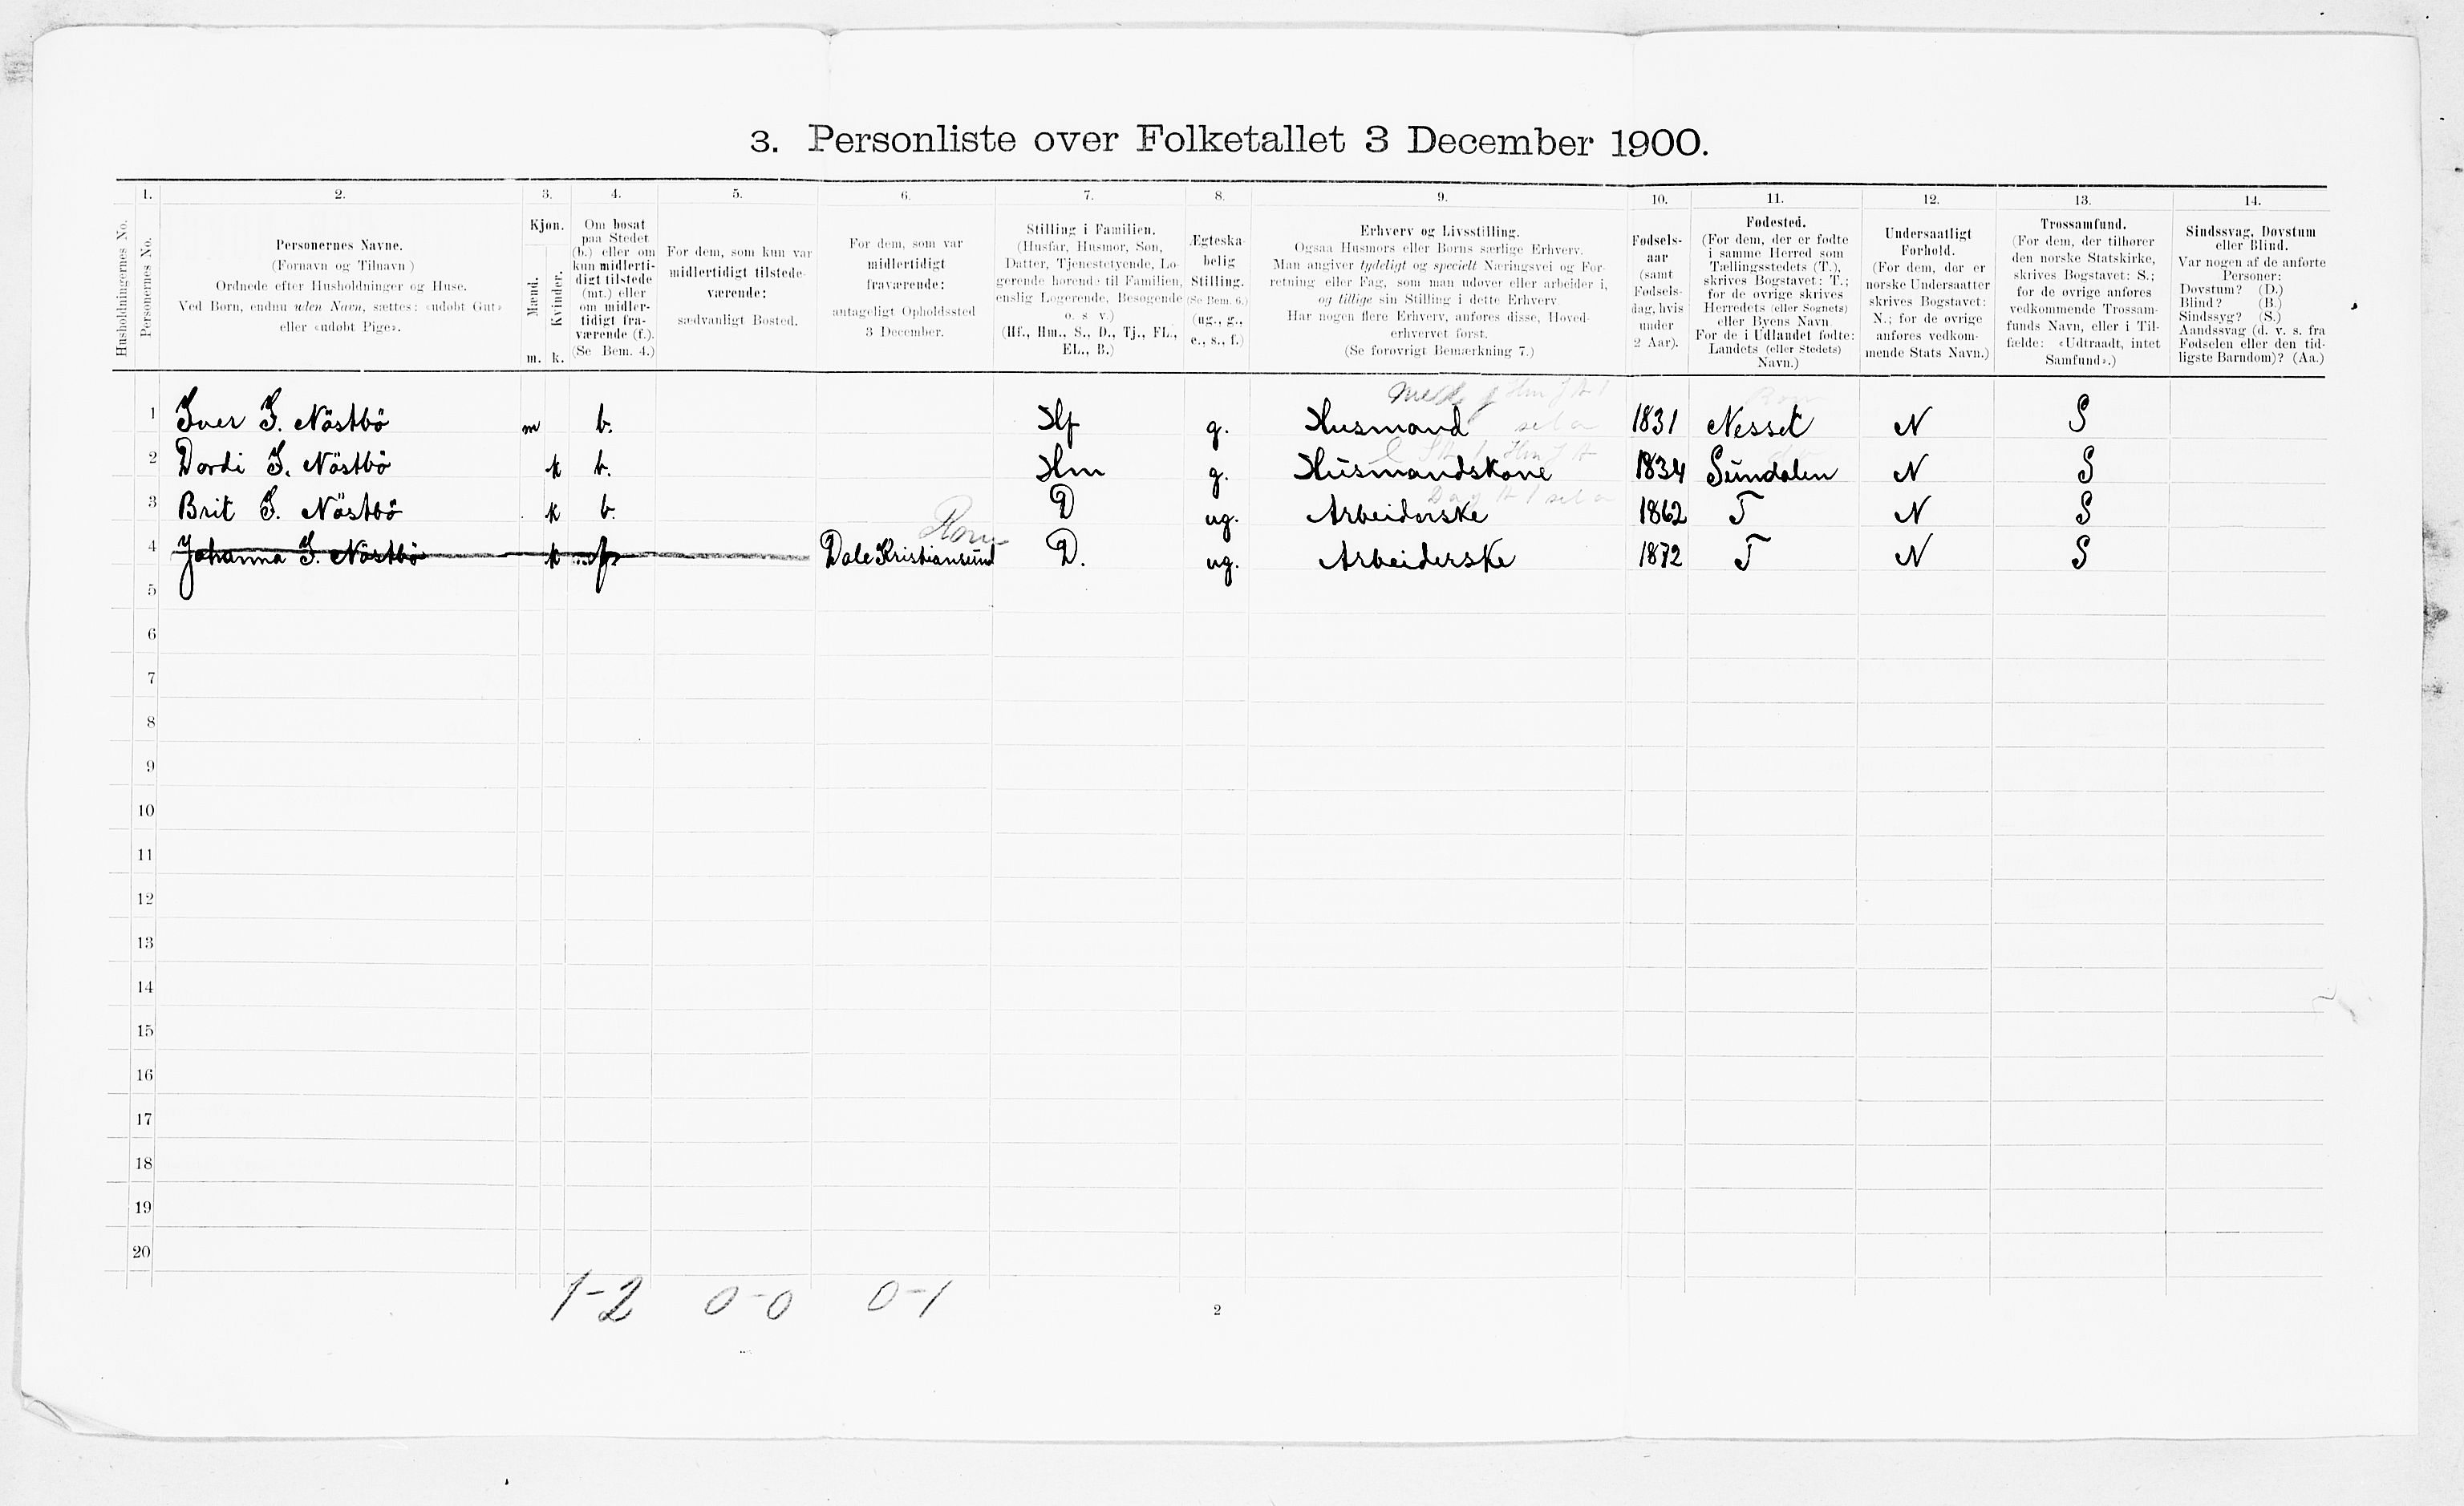 3. Personliste over Folketallet 3 December 1900.
1. 2. 3. 4. 5. 6. 7. 8. 9. 10. 11. 12. 13. 14.
Husholdningernes No.
Personernes No.
Personernes Navne.
(Fornavn og Tilnavn)
Ordnede efter Husholdninger og Huse.
Ved Børn, endnu uden Navn, sættes: «udøbt Gut»
eller «udøbt Pige».
Kjøn.
Mænd.
Kvinder.
m. k.
Om bosat
paa Stedet
(b.) eller om
kun midlerti-
digt tilstede
(mt.) eller
om midler-
tidigt fra-
værende (f.).
(Se Bem. 4.)
For dem, som kun var
midlertidigt tilstede-
værende:
sædvanligt Bosted.
For dem, som var
midlertidigt
fraværende:
antageligt Opholdssted
3 December.
Stilling i Familien.
(Husfar, Husmor, Søn,
Datter, Tjenestetyende, Lo-
gerende hørende til Familien,
enslig Logerende, Besøgende
o. s. v.)
(Hf., Hm., S., D., Tj., FL.,
EL., B.)
Ægteska-
belig
Stilling.
(Se Bem. 6.)
(ug., g.,
e., s., f.)
Erhverv og Livsstilling.
Ogsaa Husmors eller Børns særlige Erhverv.
Man angiver tydeligt og specielt Næringsvei og For-
retning eller Fag, som man udøver eller arbeider i,
og tillige sin Stilling i dette Erhverv.
Har nogen flere Erhverv, anføres disse, Hoved-
erhvervet først.
(Se forøvrigt Bemærkning 7.)
Fødsels-
aar
(samt
Fødsels-
dag, hvis
under
2 Aar).
Fødested.
(For dem, der er fødte
i samme Herred som
Tællingsstedets (T.),
skrives Bogstavet: T.;
for de øvrige skrives
Herredets (eller Sognets)
eller Byens Navn.
For de i Udlandet fødte:
Landets (eller Stedets)
Navn.)
Undersaatligt
Forhold.
(For dem, der er
norske Undersaatter
skrives Bogstavet:
N.; for de øvrige
anføres vedkom-
mende Stats Navn.)
Trossamfund.
(For dem, der tilhører
den norske Statskirke,
skrives Bogstavet: S.;
for de øvrige anføres
vedkommende Trossam-
funds Navn, eller i Til-
fælde: «Udtraadt, intet
Samfund».)
Sindssvag, Døvstum
eller Blind.
Var nogen af de anførte
Personer:
Døvstum? (D.)
Blind? (B.)
Sindssyg? (S.)
Aandssvag (d. v. s. fra
Fødselen eller den tid-
ligste Barndom)? (Aa.)
1 Iver I. Nöstbö m b. Hf g. Husmand 1831 Nesset N S
2 Dordi I. Nöstbö k b. Hm g. Husmandskone 1834 Sundalen N S
3 Brit I. Nöstbö k b. D ug. Arbeiderske 1862 T N S
4 Johanna I. Nöstbö k f Dale Kristiansund D. ug. Arbeiderske 1872 T N S
5
6
7
8
9
10
11
12
13
14
15
16
17
18
19
20
1-2 0-0 0-1
2